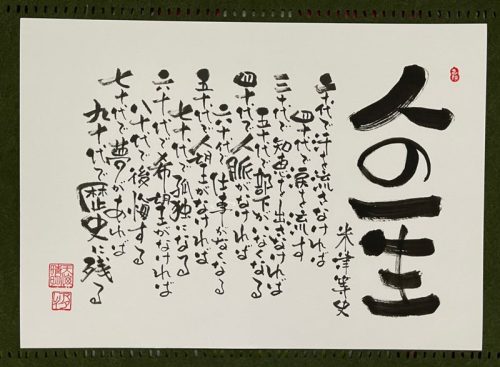 人の一生
米津等史
二十代で汗を流さなければ
四十代で涙を流す
三十代で知恵を出さなければ
五十代で部下がいなくなる
四十代で人脈がなければ
六十代で仕事がなくなる
五十代で人望がなければ
七十代で孤独になる
六十代で希望がなければ
八十代で後悔する
七十代で夢があれば
九十代で歴史に残る